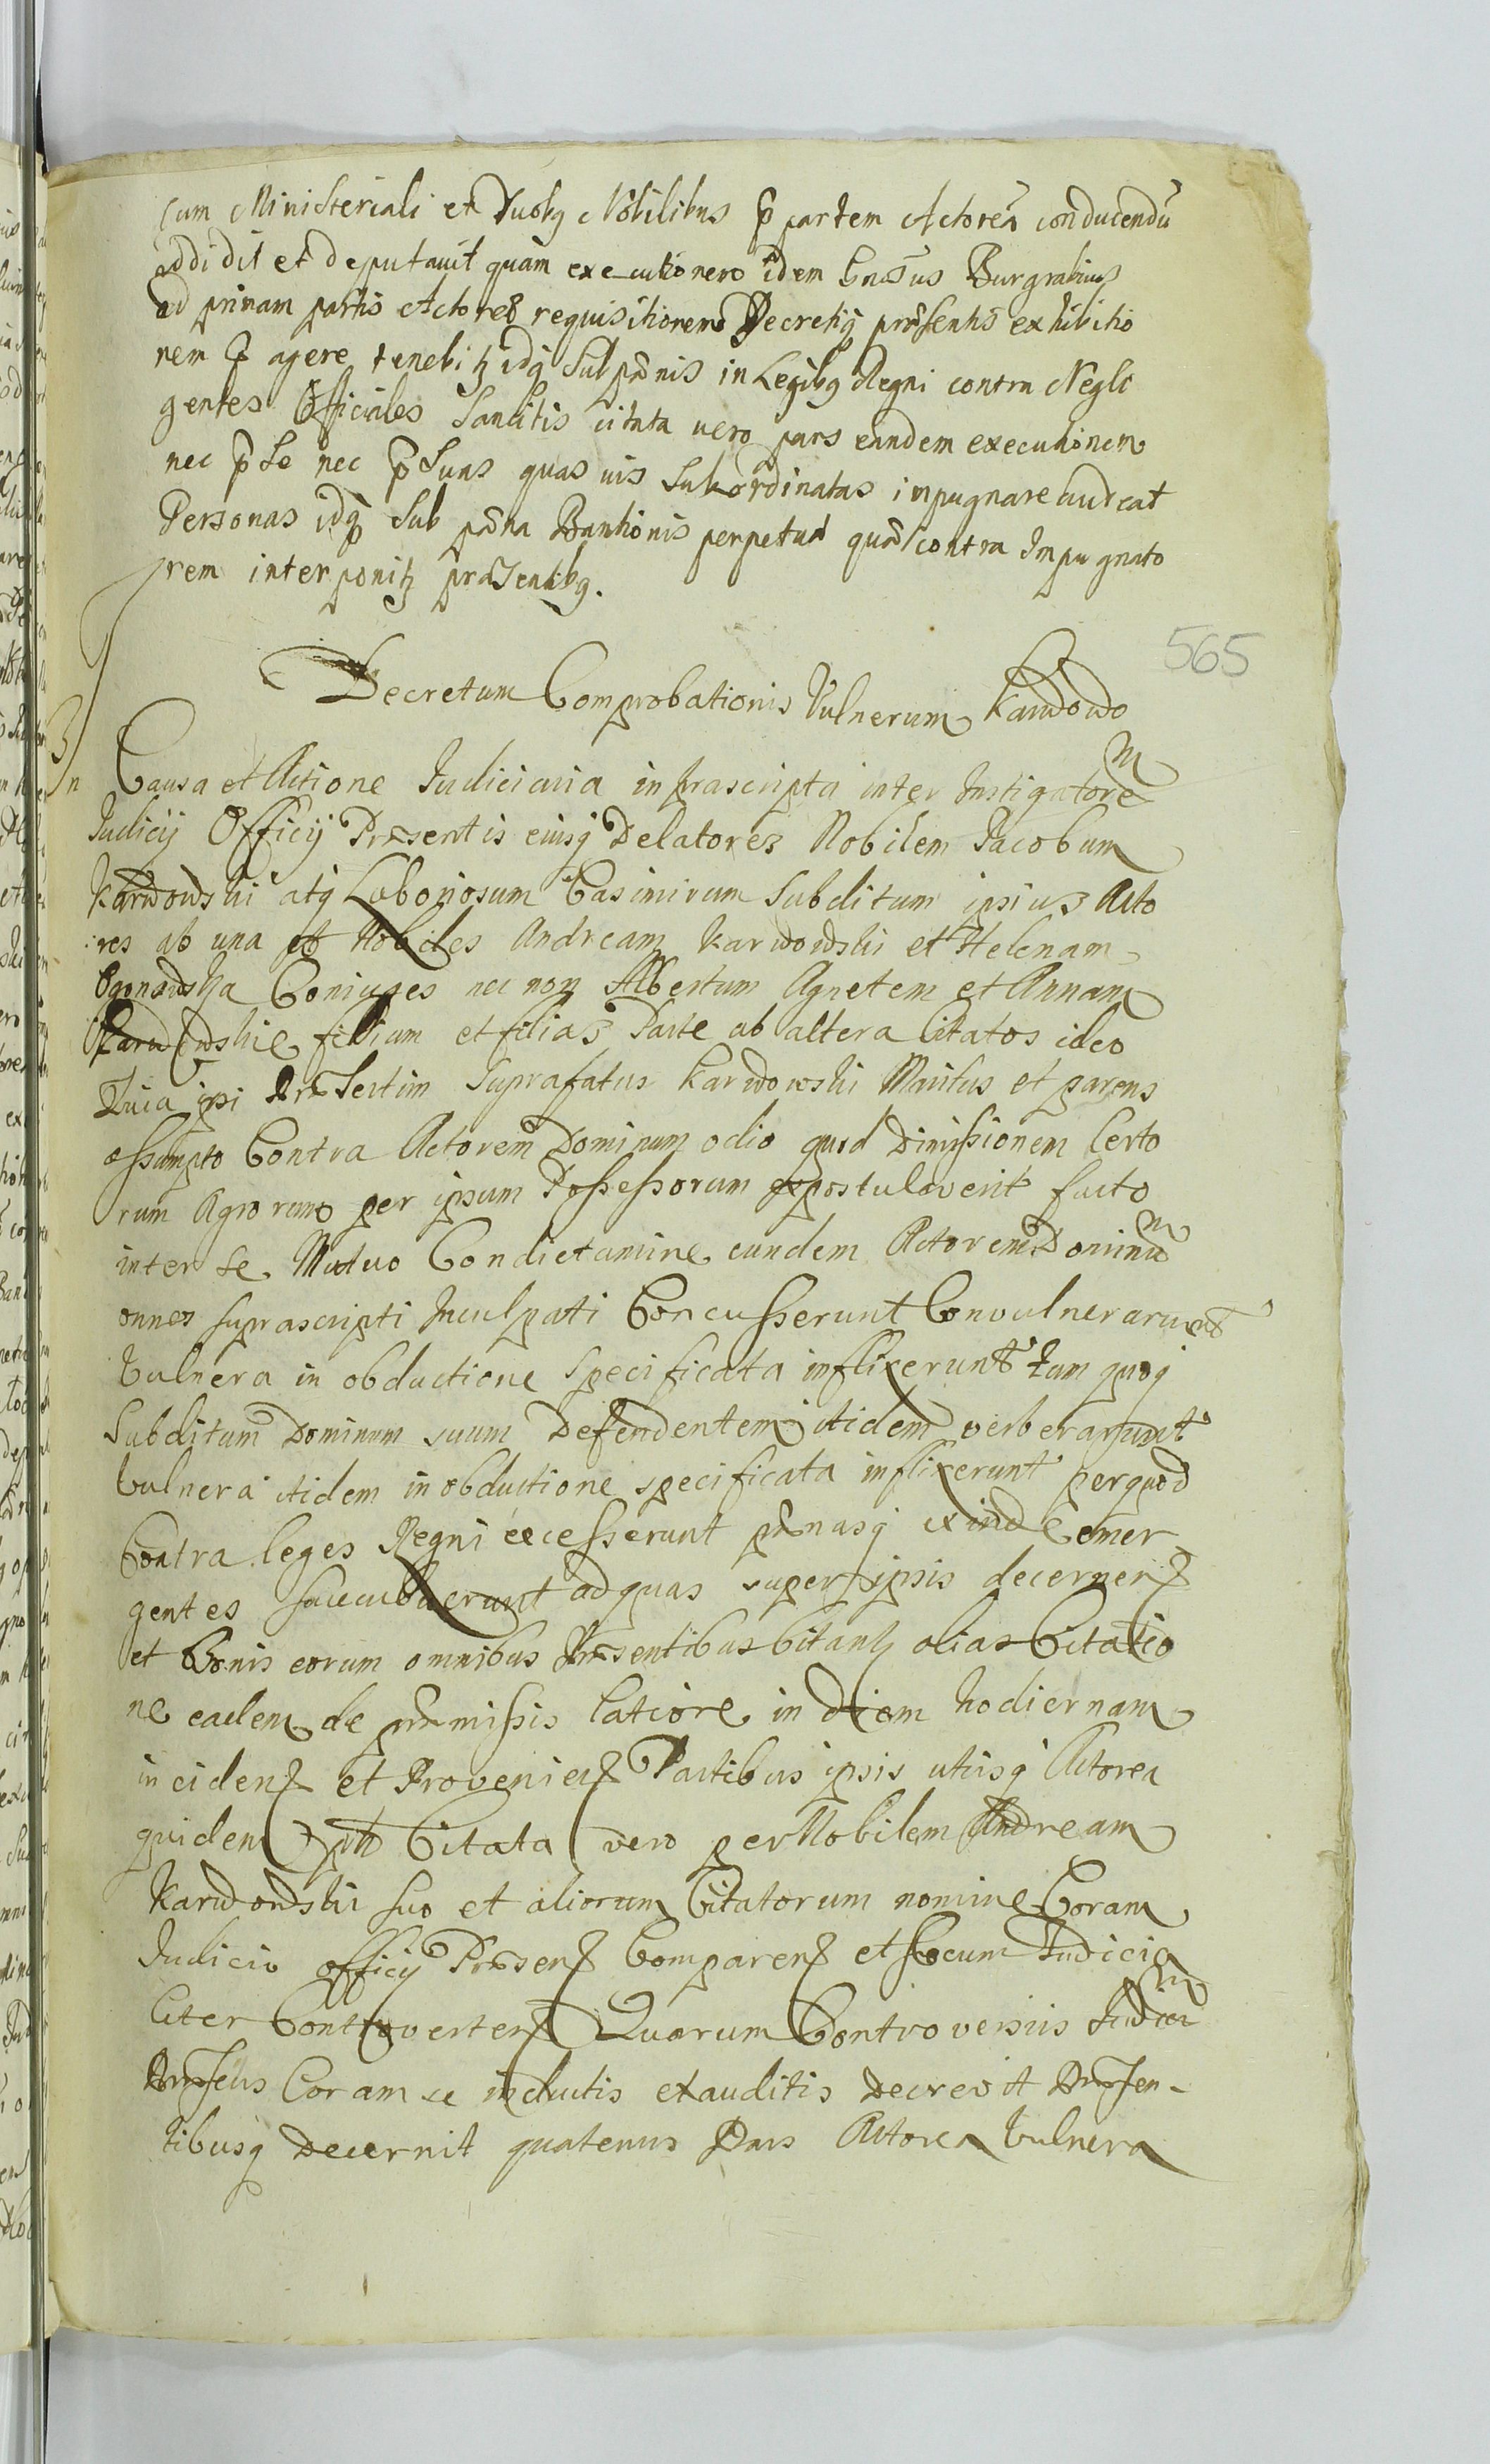 cum Ministeriali et Duobq Nobilibus p partem Actorea conducendu
addidit et deputauit quam executionem idem Gnosus Burgrabius
ad primam partis Actoreæ requisitionem Decretiq præsentis exhibitio
nem p agere tenebitz idq sub pænis in Legibq Regni contra Negli
gentes Officiales Sancitis citata vero pars eandem executionem
nec p Se nec p Suas quas vis Subordinatas impugnare audeat
Personas idq Sub pæna Bannionis perpetuæ quæ contra Impugnato
rem interponitz præsentibq.
565
Decretum Comprobationis Vulnerum Karwowo
In Causa et Actione Judiciaria infrascripta inter Instigatorem
Judicij Officij Præsentis eiusq Delatores Nobilem Jacobum
Karwowski atq Laboriosum Casimirum Subditum ipsius Acto
res ab una et Nobiles Andream Karwowski et Helenam
Coniuges nec non Albertum Agnetem et Annam
Karwowskie filium et filias Parte ab altera Citatos ideo
Quia ipsi Præsertim Suprafatus Karwowski Maritus et parens
assumpto Contra Actorem Dominum odio quod Dimissionem Certo
rum Agrorum per ipsum Possessorum expostulaverit facto
inter se Mutuo Condictamine eundem Actorem Dominum
omnes suprascripti Inculpati Concusserunt Convulnerarunt
Vulnera in obductione specificata inflixerunt tum quoq
Subditum Dominum suum Defendentem itidem verberarunt
Vulnera itidem in obductione specificata inflixerunt perquod
Contra leges Regni excesserunt pænasq exinde emer
gentes succubuerunt ad quas super ipsis decernen
et Bonis eorum omnibus Præsentibus Citantz alias Citatio
ne eadem de præmissis Latiore in diem hodiernam
inciden et Provenien Partibus ipsis utrisq Actorea
quidem Citata vero per Nobilem Andream
Karwowski suo et aliorum Citatorum nomine Coram
Judicio officij Præsen Comparen et secum Judicia
liter Controverten Quarum Controversiis Judicium
Præsens Coram se inductis exauditis Decrevit Præsen-
tibusq Decernit quatenus Pars Actorea Vulnera